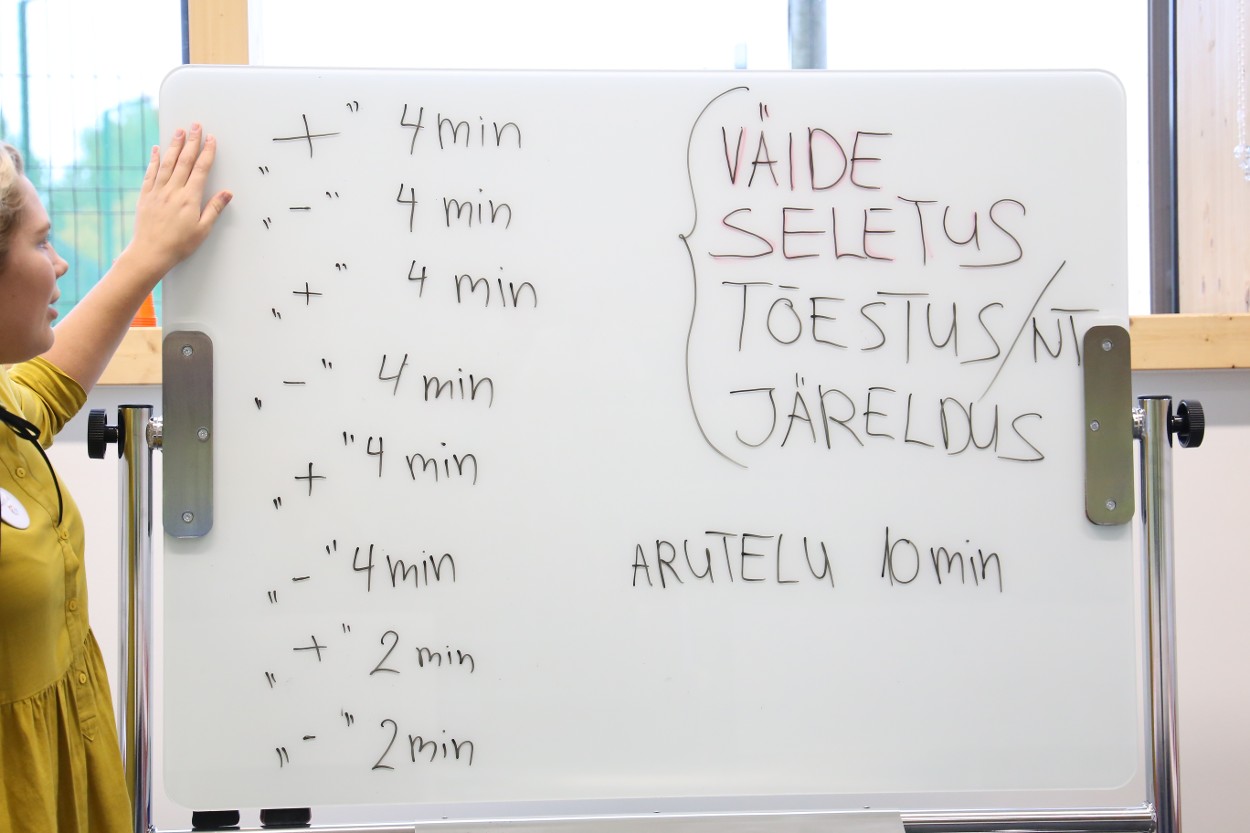 „+” 4 min
„-” 4 min
„+” 4 min
„-” 4 min
„+” 4 min
„-” 4 min
„+” 2 min
„-” 2 min
VÄIDE
SELETUS
TÕESTUS/NT
JÄRELDUS
ARUTELU 10 min